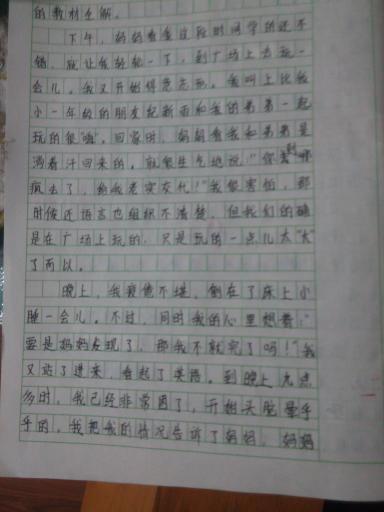 的教材全解。
下午，妈妈看我这段时间学的还不
错，就让我轻松一下，到广场上去玩一
会儿，我又开始得意忘形。我叫上比我
小一年级的朋友纪新雨和我的弟弟一起
玩的很嗨。回家时，妈妈看我和弟弟是
满着汗回来的，就很生气地说："你到哪
疯去了，给我老实交代！"我很害怕，那
时候还语言也组织不清楚。但我们的确
是在广场上玩的，只是玩的一点儿太"大"
了而以。
晚上，我疲倦不堪，倒在了床上小
睡一会儿。不过，同时我的心里想着："
要是妈妈发现了，那我不就完了吗！"我
又站了进来，看起了英语。到晚上九点
多时，我已经非常困了，开始头脑晕乎
乎的，我把我的情况告诉了妈妈，妈妈